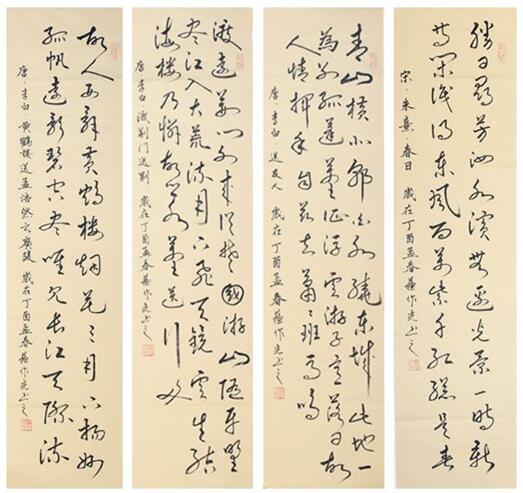 勝日尋芳泗水濱無邊光景一時新
等閒識得東風面萬紫千紅總是春
宋·朱熹·春日 歲在丁酉孟春作光書之
青山橫北郭白水繞東城此地一
為別孤蓬萬里征浮雲游子意落日故
人情揮手自茲去蕭蕭班馬鳴
唐·李白·送友人 歲在丁酉孟春作光書之
渡遠荊門外來從楚國游山隨平野
盡江入大荒流月下飛天鏡雲生結
海樓仍憐故鄉水萬里送行舟
唐·李白·渡荊門送別 歲在丁酉孟春作光書之
故人西辭黃鶴樓烟花三月下揚州
孤帆遠影碧空盡唯見長江天際流
唐·李白·黃鶴樓送孟浩然之廣陵 歲在丁酉孟春作光書之